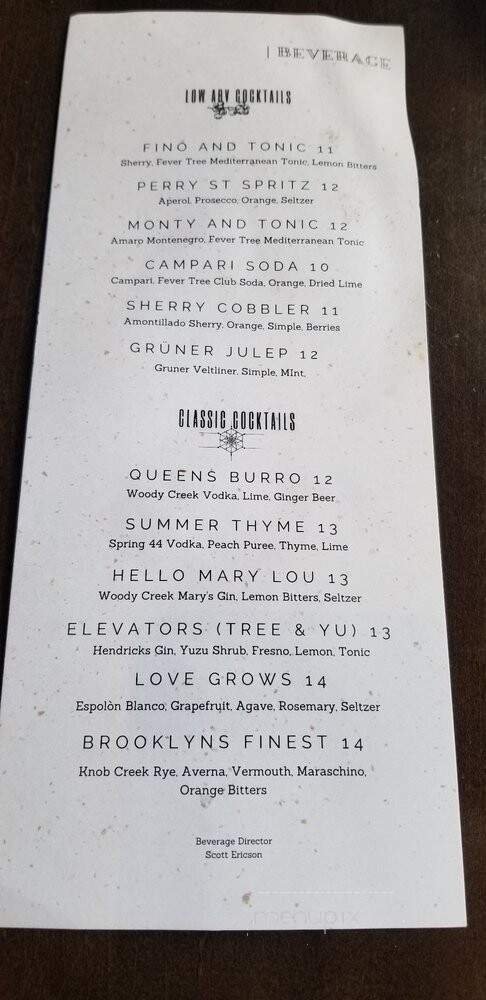 | BEVERAGE
LOW ABV COCKTAILS
FINO AND TONIC 11
Sherry, Fever Tree Mediterranean Tonic, Lemon Bitters
PERRY ST SPRITZ 12
Aperol, Prosecco, Orange, Seltzer
MONTY AND TONIC 12
Amaro Montenegro, Fever Tree Mediterranean Tonic
CAMPARI SODA 10
Campari, Fever Tree Club Soda, Orange, Dried Lime
SHERRY COBBLER 11
Amontillado Sherry, Orange, Simple, Berries
GRÜNER JULEP 12
Gruner Veltliner, Simple, MInt,
CLASSIC COCKTAILS
QUEENS BURRO 12
Woody Creek Vodka, Lime, Ginger Beer
SUMMER THYME 13
Spring 44 Vodka, Peach Puree, Thyme, Lime
HELLO MARY LOU 13
Woody Creek Mary's Gin, Lemon Bitters, Seltzer
ELEVATORS (TREE & YU) 13
Hendricks Gin, Yuzu Shrub, Fresno, Lemon, Tonic
LOVE GROWS 14
Espolòn Blanco, Grapefruit, Agave, Rosemary, Seltzer
BROOKLYNS FINEST 14
Knob Creek Rye, Averna, Vermouth, Maraschino,
Orange Bitters
Beverage Director
Scott Ericson
menupix